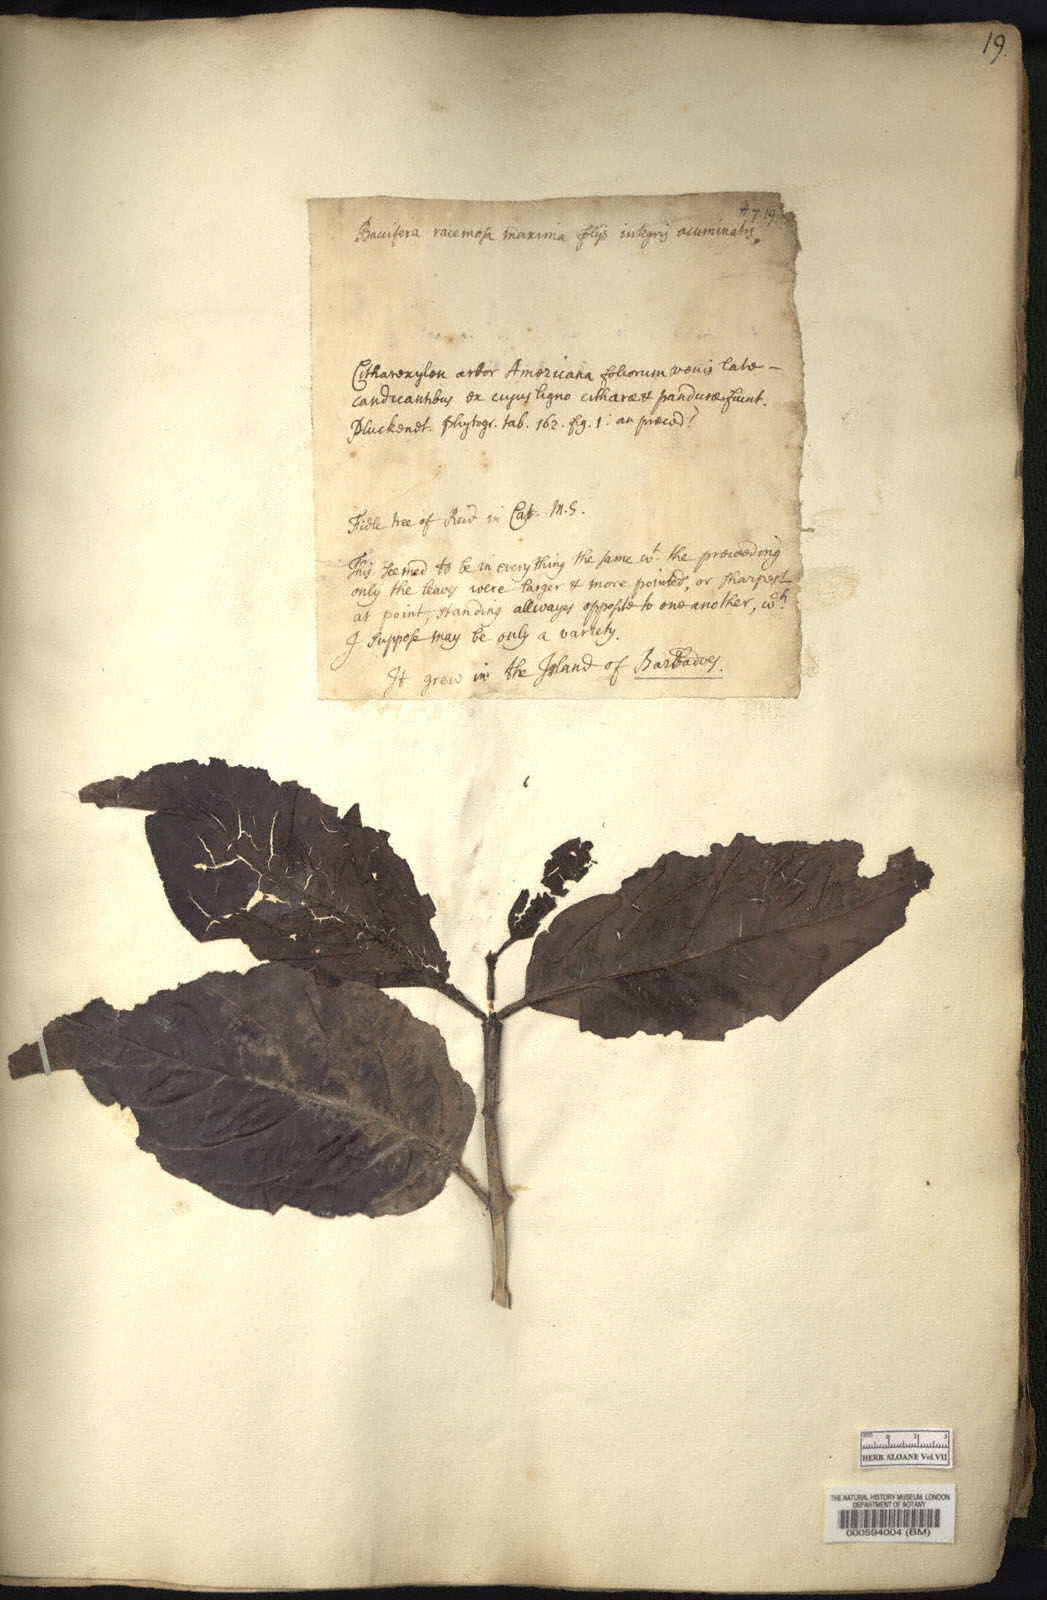 19.
H 7. 19.
Baccifera racemosa maxima folijs integris acuminatis.
Citharexylon arbor Americana foliorum venis late
candicantibus ex cujus ligno citharæ & panduræ fiunt.
Pluckenet. phytogr. tab. 162. fig. 1. an præced?
Fidle tree of Reid in Cat. M.S.
This seemed to be in everything the same wt. the preceeding
only the leaves were larger & more pointed, or sharpest
at point, standing allwayes opposite to one another, wch.
I suppose may be only a variety.
It grew in the Island of Barbadoes.
HERB. SLOANE Vol. VII
THE NATURAL HISTORY MUSEUM, LONDON
DEPARTMENT OF BOTANY
000594004 (BM)